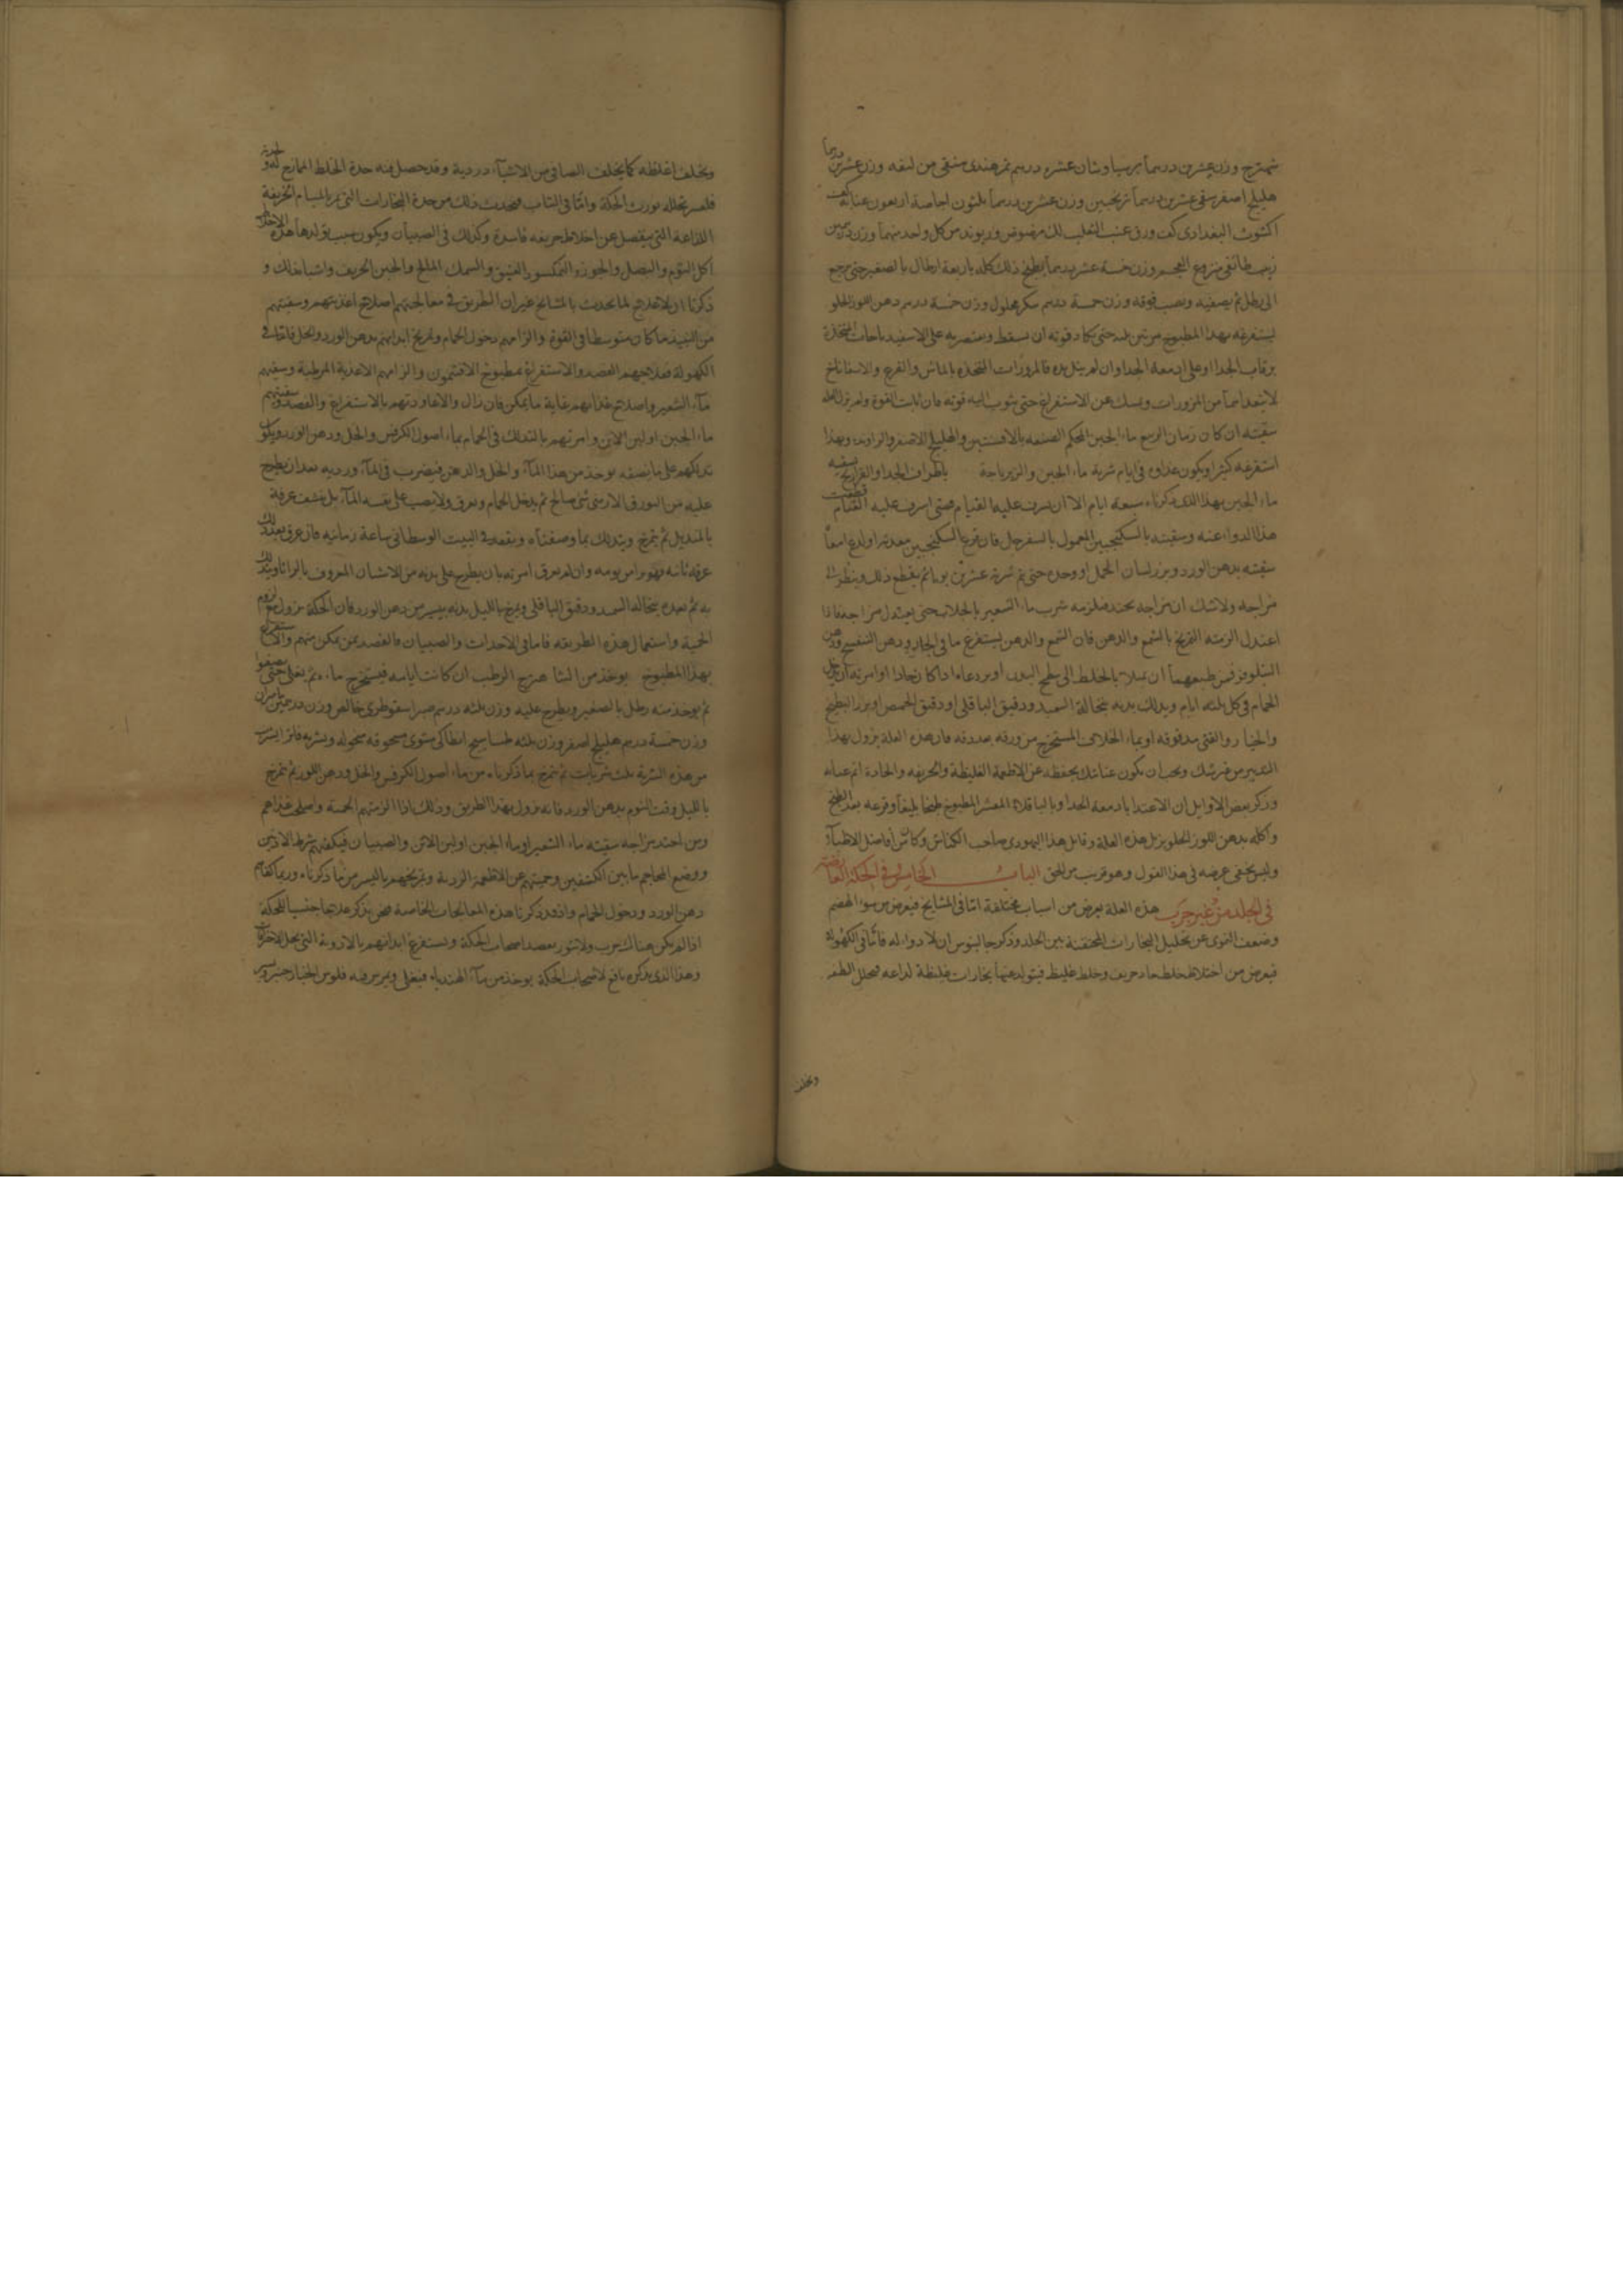 شهترج وزن عشرين درهما برسياوشان عشره درهم تمر هندى منقى من ليفه وزن عشرين درهما
هليلج اصفر سقى عشرين درهما ترنجبين وزن عشرين درهما ثلثون اجاصة اربعون عنابة كف
اكشوث البغدادى كف ورق عنب الثعلب لك مرضوض وريوند من كل واحد منهما وزن درهمين
زبيب طائفى منزوع العجم وزن خمسة عشر درهما يطبخ ذلك كله باربعة ارطال بالصغير حتى يرجع
الى رطل ثم يصفيه ويصب فوقه وزن خمسة درهم سكر محلول وزن خمسة درهم دهن اللوز الحلو
يستفرغه بهذا المطبوخ مرتين ثلثه حتى تكاد قوته ان تسقط ويقتصر به على الاسفيدباجات المتخذة
برقاب الجدا او على ان معه الجدا وان لم يتل بده فالمزورات المتخذه بالماش والقرع والاسفاناخ
من المزورات ويمسك عن الاستفراغ حتى يثوب اليه قوته فان ثابت القوة ولم تزل العله
سقيته ان كان زمان الربيع ماء الجبن المحكم الصنعه بالافسنتين والهليلج الاصفر والراوند وبهذا
استفرغه كثيرا ويكون غذاوه فى ايام شربة ماء الجبن والزيرباجة باطراف الجدا والفراريج يسقيه
ماء الجبن بهذا الذى ذكرناه سبعة ايام الا ان يسرف عليه القيام فمتى اسرف عليه القيام قطعت
هذا الدواء عنه وسقيته بالسكنجبين المعمول بالسفرجل فان قرع السكنجبين معدته او لدع امعاه
سقيته بدهن الورد وبزر لسان الحمل او وحده حتى يتم شربة عشرين يوما ثم يقطع ذلك وينظر الى
مزاجه ولا شك ان مزاجه يحتد فيلزمه شرب ماء الشعير بالجلاب حتى يعتدل مزاجه فاذا
اعتدل الزمته التمريخ بالشمع والدهن فان الشمع والدهن يستفرغ ما فى الجلد ودهن البنفسج ودهن
النيلوفر فمن طبعهما ان يميلا بالخلط الى سطح البدن او يردعاه اذا كان حادا او امرته ان يدخل
الحمام فى كل ثلثه ايام ويدلك بدنه بنخالة السميد ودقيق الباقلى او دقيق الحمص او بزر البطيخ
والخيار والقثى مدقوقه او بماء المستخرج من ورقه بعد دقه فان هذه العلة يزول بهذا
التدبير من غير شك ويجب ان يكون عنايتك بحفظه عن الاطعمة الغليظة والحريفه والحادة اتم عنايه
وذكر بعض الاوايل ان الاغتدا بادمعة الجدا وبالباقلاء المقشر المطبوخ طبخا بليغا وقرعه بعد الطبخ
واكله بدهن اللوز الحلو يزيل هذه العلة وقايل هذا اليهودى صاحب الكناش وكان من افاضل الاطباء
وليس يخفى غرضه فى هذا القول وهو قريب من الحق الباب الخامس فى الحكة العارضة
فى الجلد من غير جرب هذه العلة يعرض من اسباب مختلفة اما فى المشايخ فيعرض من سوء الهضم
وضعف القوى عن تحليل البخارات المحتقنة بين الجلد وذكر جالينوس ان لا دواء له فاما فى الكهولة
فيعرض من اختلاط خلط حاد حريف وخلط غليظ فيتولد عنهما بخارات غليظة لداعه فيتحلل الطفه
ويخلف
ويخلف اغلظه كما يخلف الصافى من الاشياء درديه وقد حصل فيه حدة الخلط الممازج
فلعسر تحلله يورث الحكة واما فى الشاب فيحدث ذلك من حدة البخارات التى تمر بالمسام الحريفة
اللذاعة التى ينفصل عن اخلاط حريفه فاسدة وكذلك فى الصبيان ويكون سبب تولدها هذه الاخلاط
اكل الثوم والبصل والجوز والنمكسود العتيق والسمك المالح والجبن الحريف واشباه ذلك و
ذكرنا ان لا علاج لما يحدث بالمشايخ غير ان الطريق فى معالجتهم اصلاح اغذيتهم وسقيتهم
من النبيذ ما كان متوسطا فى القوة والزامهم دخول الحمام وتمريخ ابدانهم بدهن الورد والخل فاما فى
الكهولة فعلاجهم الفصد والاستفراغ بمطبوخ الافتيمون والزامهم الاغذية المرطبة وسقيهم
ماء الشعير واصلاح غذائهم غاية ما يمكن فان زال والا عاودتهم بالاستفراغ والفصد وسقيتهم
ماء الجبن او لبن الاتن وامرتهم بالتدلك فى الحمام بماء اصول الكرفس والخل ودهن الورد ويكون
تدلكهم على ما نصفه يوخذ من هذا الماء والخل والدهن فيضرب فى الماء ورديه بعد ان يطرح
عليه من البورق الارمنى شى صالح ثم يدخل الحمام ويعرق ولا يصب على نفسه الماء بل ينشف عرقه
بالمنديل ثم يتمرخ ويتدلك بما وصفناه ويقعد فى البيت الوسطانى ساعة زمانيه فان عرق بعد ذلك
عرقه ثانيه فهو امر يومه وان لم يعرق امرته بان يطرح على بدنه من الاشنان المعروف
به ثم بعده بنخالة السميد ودقيق الباقلى ويمرخ بالليل بدنه بيسير من دهن الورد فان الحكة تزول مع لزوم
الحمية واستعمال هذه الطريقه فاما فى الاحداث والصبيان فالفصد بمن يمكن منهم والاستفراغ
بهذا المطبوخ يوخذ من الشاهترج الرطب ان كانت ايامه فيستخرج ماءه ثم يغلى حتى يصفوا
ثم يوخذ منه رطل بالصغير ويطرح عليه وزن ثلثه درهم صبر اسقوطرى خالص وزن درهمين
وزن خمسة درهم هليلج اصفر وزن ثلثه انطاكى مشوى مسحوقه منخوله ويشربه فاذا شرب
من هذه الشربة ثلث شربات ثم يتمرخ بما ذكرناه من ماء اصول الكرفس والخل ودهن اللوز ثم يتمرخ
بالليل وقت النوم بدهن الورد فانه يزول بهذا الطريق وذلك اذا الزمتهم الحمية واصلحت غذاهم
ومن احتد مزاجه سقيته ماء الشعير او ماء الجبن او لبن الاتن والصبيان فيكفيهم شرط الاذنين
ووضع المحاجم ما بين الكتفين وحميتهم عن الاطعمة الردية وتمريخهم باليسير من ما ذكرناه وربما كفاهم
دهن الورد ودخول الحمام واذ قد ذكرنا هذه المعالجات الخاصة فنحن نذكر علاجا جنسيا للحكة
اذا لم يكن هناك جرب ولا بثور بفصد اصحاب الحكة ويستفرغ ابدانهم بالادوية التى تحل الاحتراقات
وهذا الذى نذكره نافع لاصحاب الحكة يوخذ من ماء الهندباء فيغلى ويمرس فيه فلوس الخيار جنبر